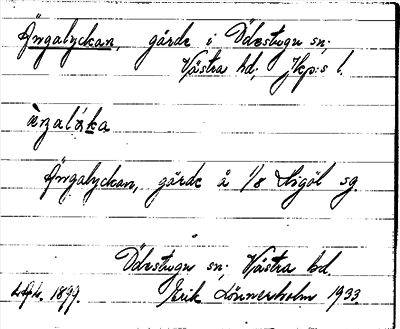 Ängalyckan, gärde i Ödestugu sn;
Västra hd. Jkp:s l.
Ängalyckan, gärde å 1/8 Stigöl sg.
Ödestugu sn; Västra hd.
1899. Erik Lönnerholm 1933